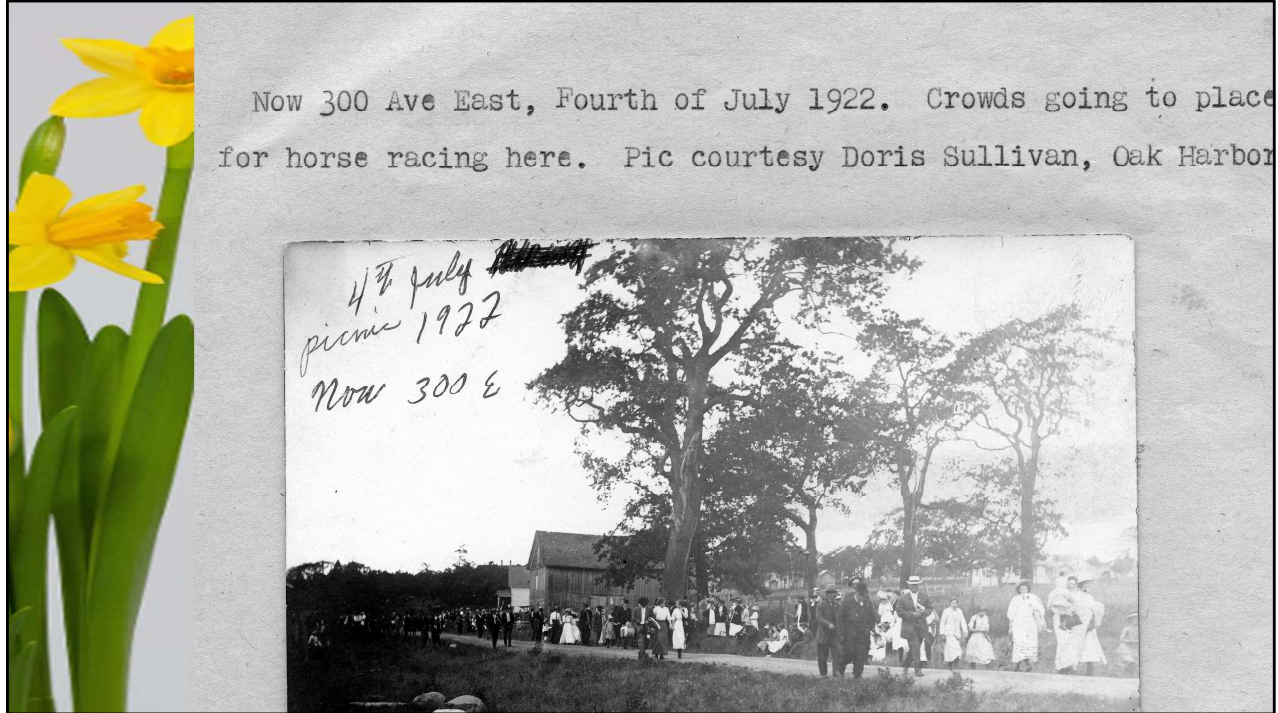 Now 300 Ave East, Fourth of July 1922. Crowds going to place
for horse racing here. Pic courtesy Doris Sullivan, Oak Harbor
4th July
picnic 1922
Now 300 E